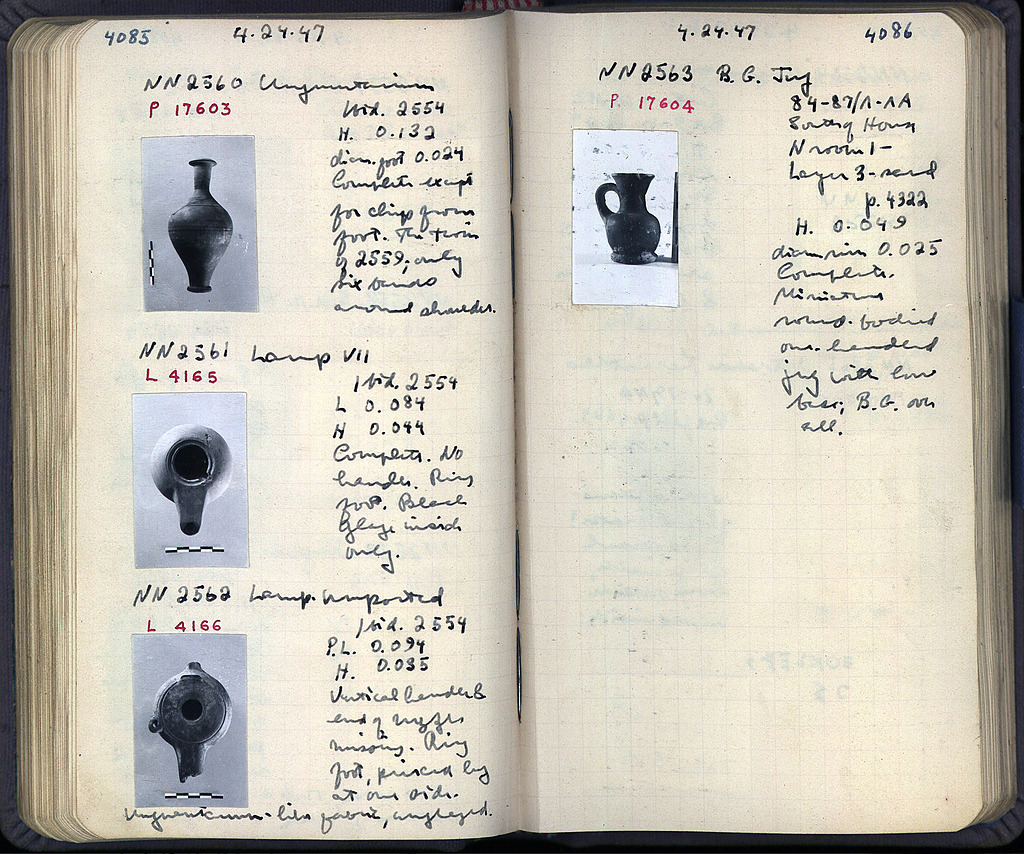 4085 4.24.47
NN 2560 Unguentarium
P 17603
Ibid. 2554
H. 0.132
diam. foot 0.024
Complete except
for chip from
foot. The twin
of 2559; only
six bands
around shoulder.
NN 2561 Lamp VII
L 4165
Ibid. 2554
L 0.084
H 0.044
Complete. No
handle. Ring
foot. Black
Glaze inside
only.
NN 2562 Lamp. Imported
L 4166
Ibid. 2554
P.L. 0.094
H. 0.035
Vertical handle &
end of nozzle
missing. Ring
foot, pierced lug
at one side.
Unguentarium-like fabric, unglazed.
4.24.47 4086
NN 2563 B.G. Jug
P 17604
84-87/Λ-ΛΑ
South of House
N room 1-
Layer 3-sand
p. 4322
H. 0.049
diam. rim 0.025
Complete.
Miniature
round-bodied
one-handled
jug with low
base; B.G. over
all.